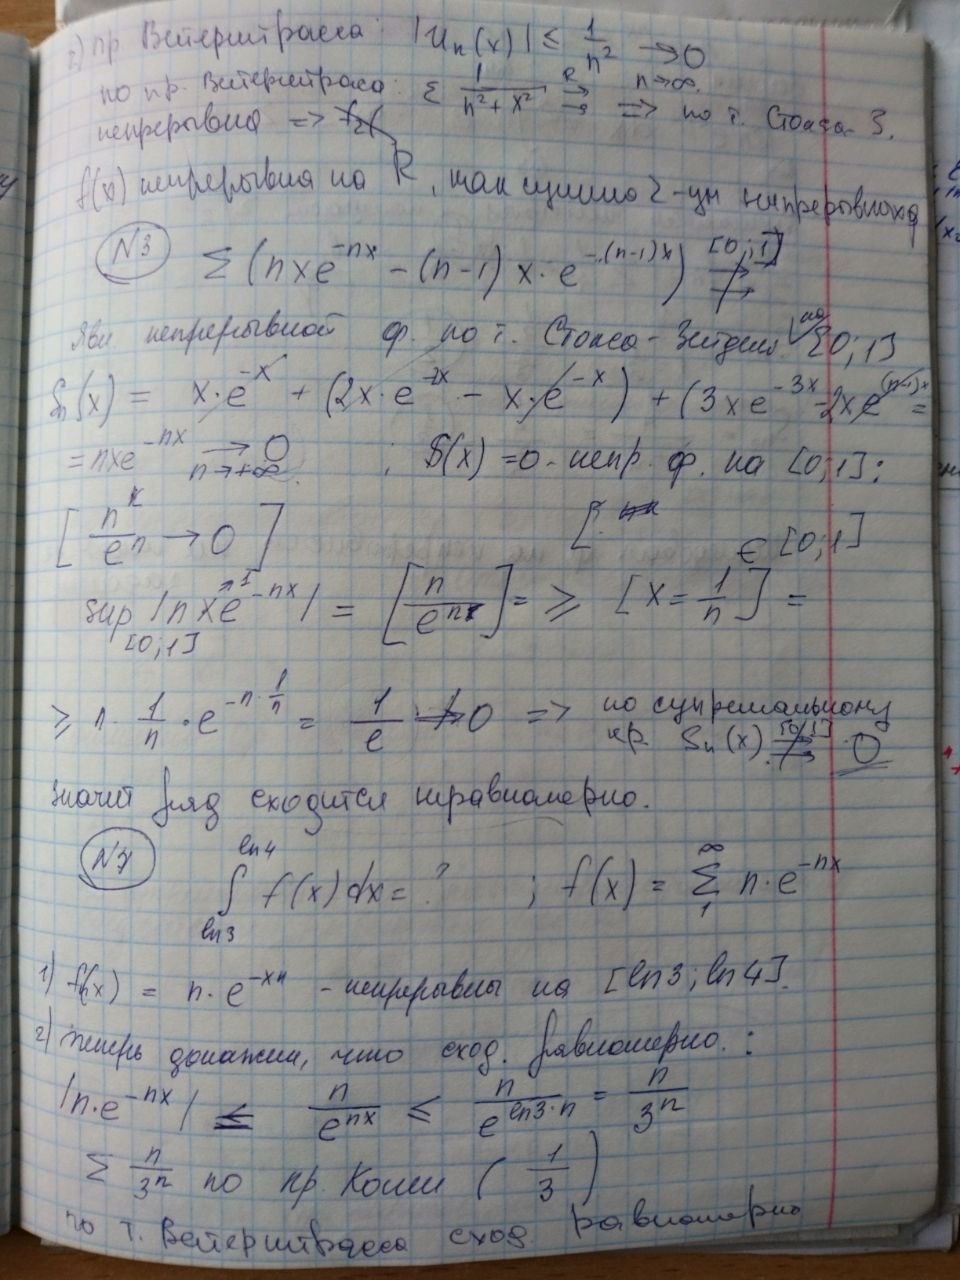 2) пр. Вейерштрасса: |Un(x)| ≤ 1/n² → 0
n→∞
по пр. Вейерштраса: Σ 1/(n²+x²) ⇉ R => по т. Стокса-З.
непрерывна =>
f(x) непрерывна на R, как сумма
N3 Σ(nxe^{-nx} - (n-1)x·e^{-(n-1)x}) [0;1]
непрерывной ф. по т. Стокса-Зейделя на [0;1]
Sn(x) = x·e^{-x} + (2x·e^{-2x} - x·e^{-x}) + (3xe^{-3x} - 2xe^{(n-1)x} =
= nxe^{-nx} → 0 n→+∞ ; S(x) = 0 - непр. ф. на [0;1]:
[n^k/e^n → 0] [ ∈ [0;1]
sup [0;1] |nxe^{-nx}| = [n/e^{nx}] = ≥ [x = 1/n] =
≥ n · 1/n · e^{-n·1/n} = 1/e ↛ 0 => по супремальному
пр. Sn(x) [0;1] 0
значит ряд сходится неравномерно.
N7 ∫_{ln3}^{ln4} f(x)dx = ? ; f(x) = Σ_1^∞ n·e^{-nx}
1) f(x) = n·e^{-xn} - непрерывны на [ln3; ln4].
2) теперь докажем, что сход. равномерно:
|n·e^{-nx}| ≤ n/e^{nx} ≤ n/e^{ln3·n} = n/3^n
Σ n/3^n по пр. Коши (1/3)
по т. Вейерштрасса сход. равномерно